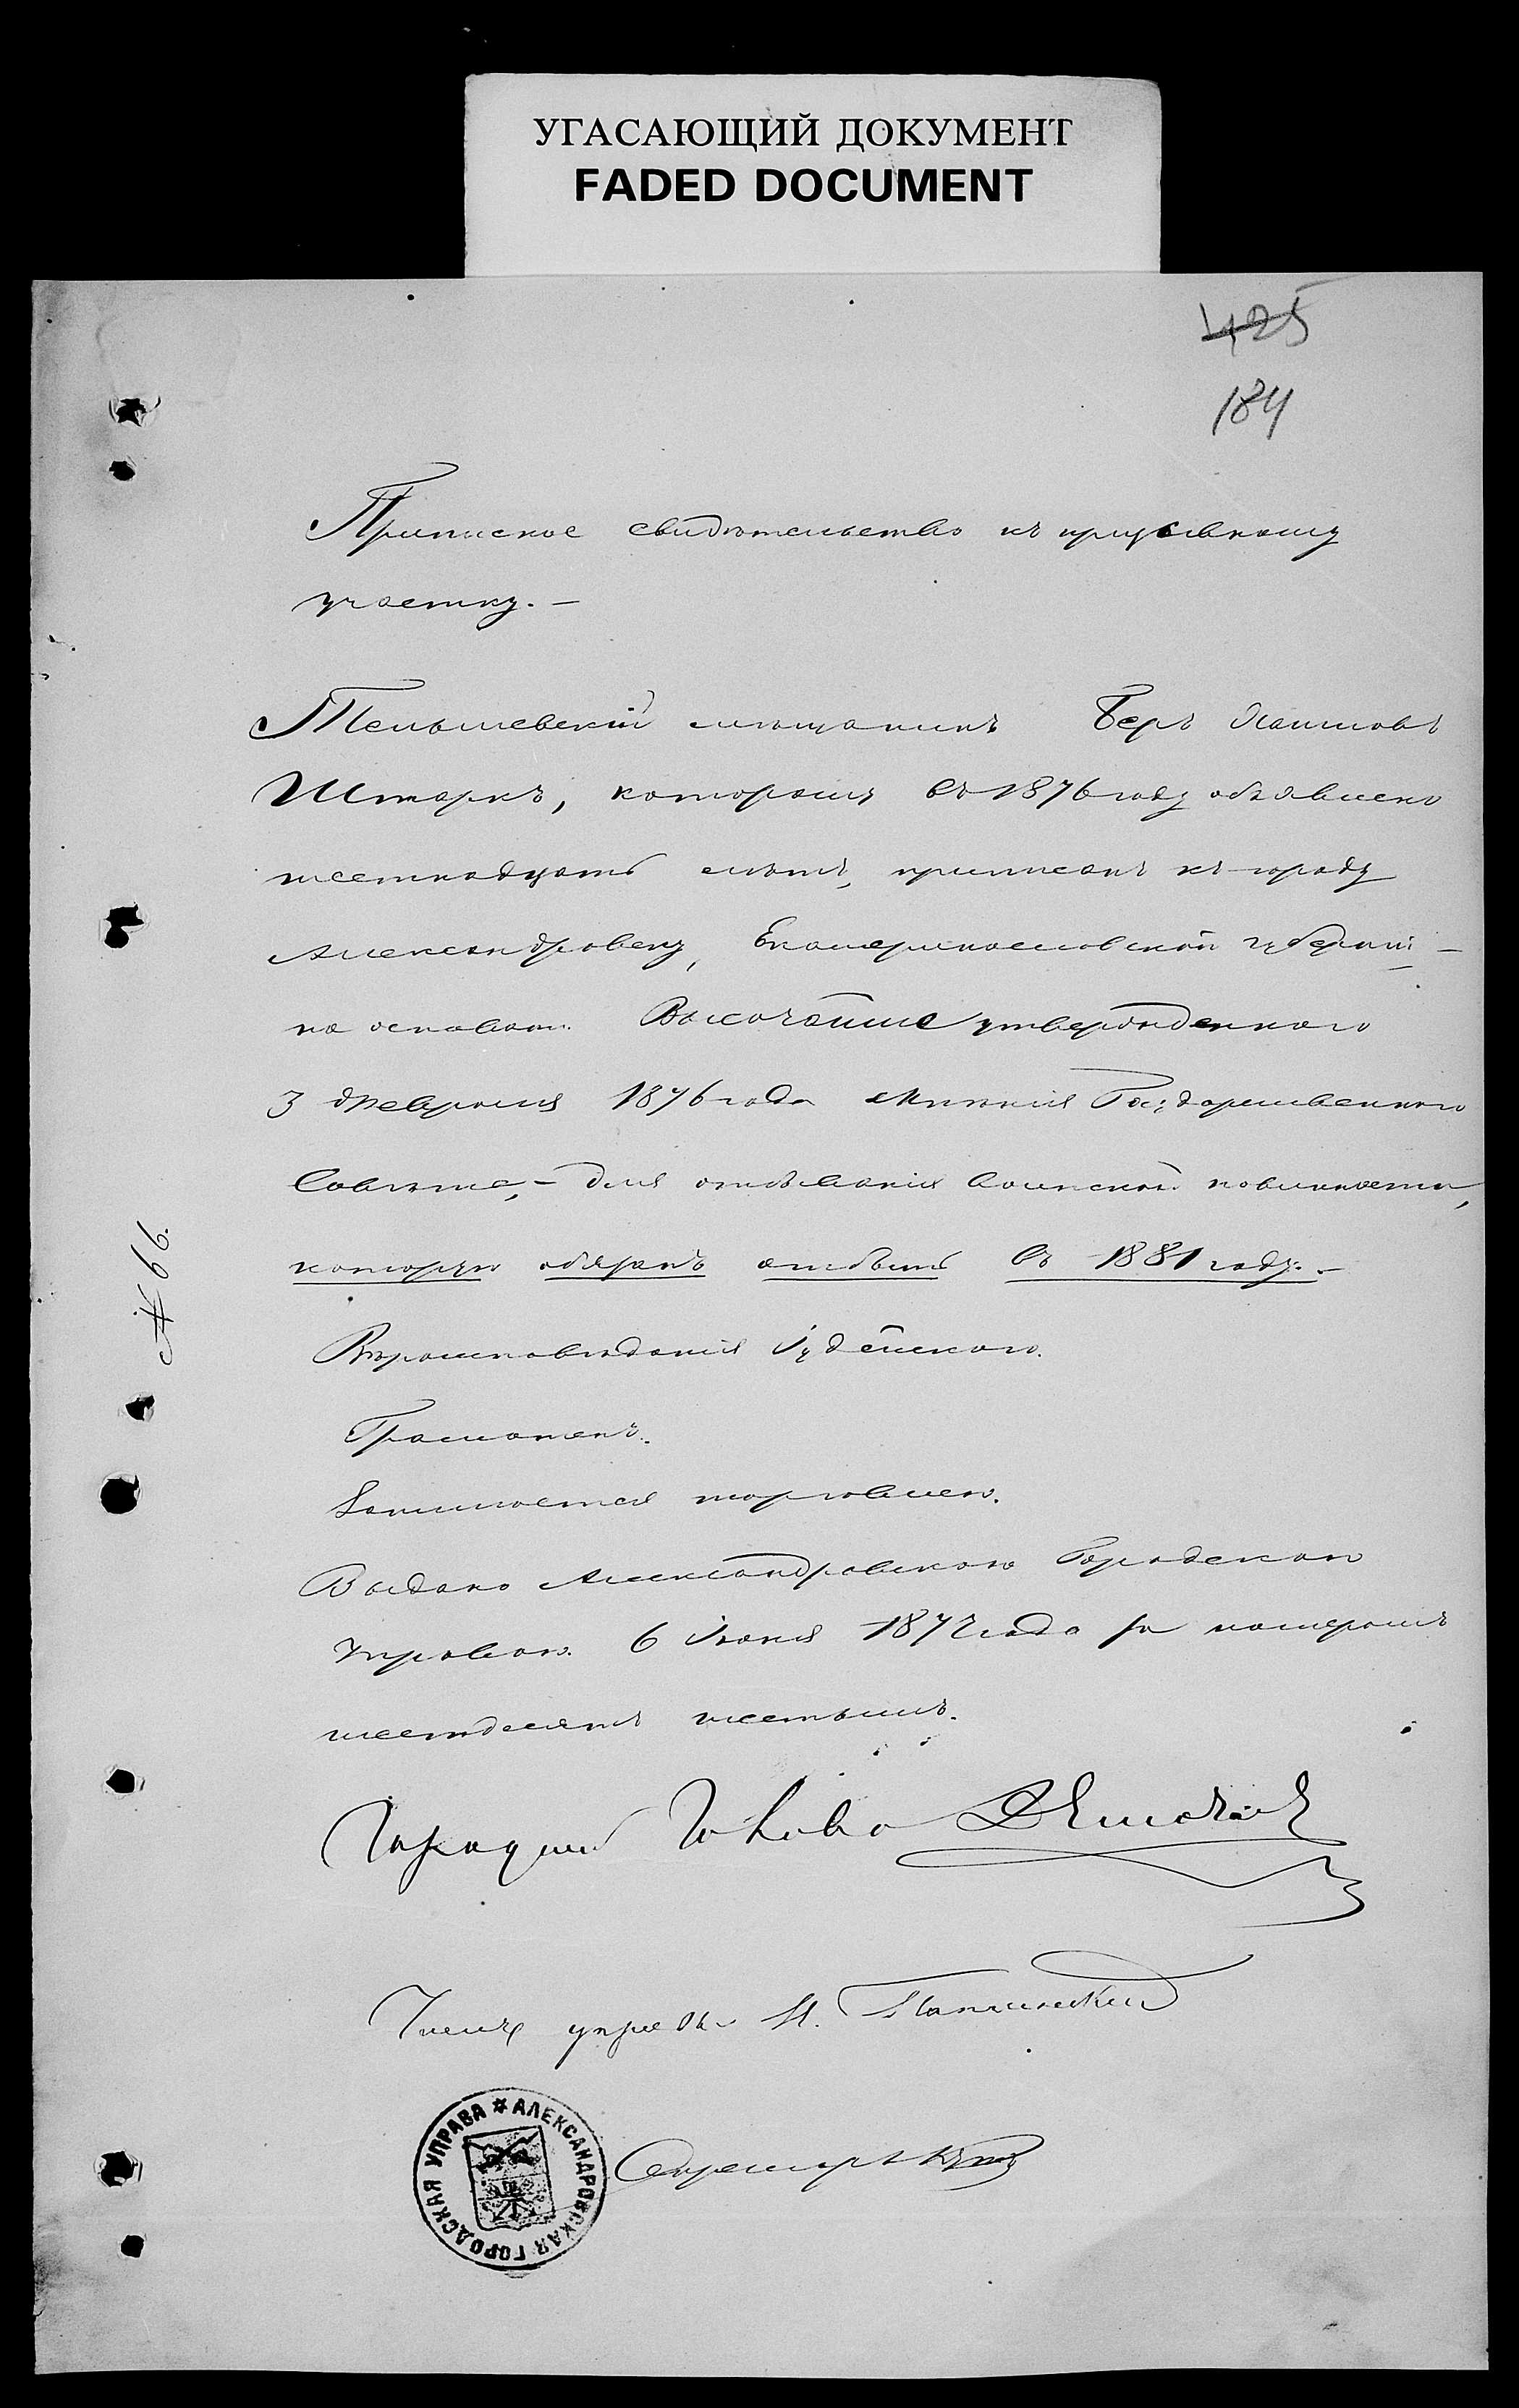 УГАСАЮЩИЙ ДОКУМЕНТ
FADED DOCUMENT
425
184
Приписное свидѣтельство къ призывному
участку. —
Тельшевскій мѣщанинъ Беръ Хаимовъ
Штаркъ, которому въ 1876 году объявлено
шестнадцать лѣтъ, приписанъ къ городу
Александровску, Екатеринославской губерніи —
на основан. Высочайше утвержденного
3 февраля 1876 года мнѣнія Государственного
Совѣта, — для отбыванія воинской повинности,
№ 66.
которую обязанъ отбыть въ 1881 году. —
Вѣроисповѣданія Іудейского.
Грамотенъ.
Занимается торговлею.
Выдано Александровскою Городскою
Управою. 6 Іюня 1877 года за номеромъ
шестдесятъ шестымъ.
Городской Голова
Членъ управы
Секретарь
АЛЕКСАНДРОВСКАЯ ГОРОДСКАЯ УПРАВА